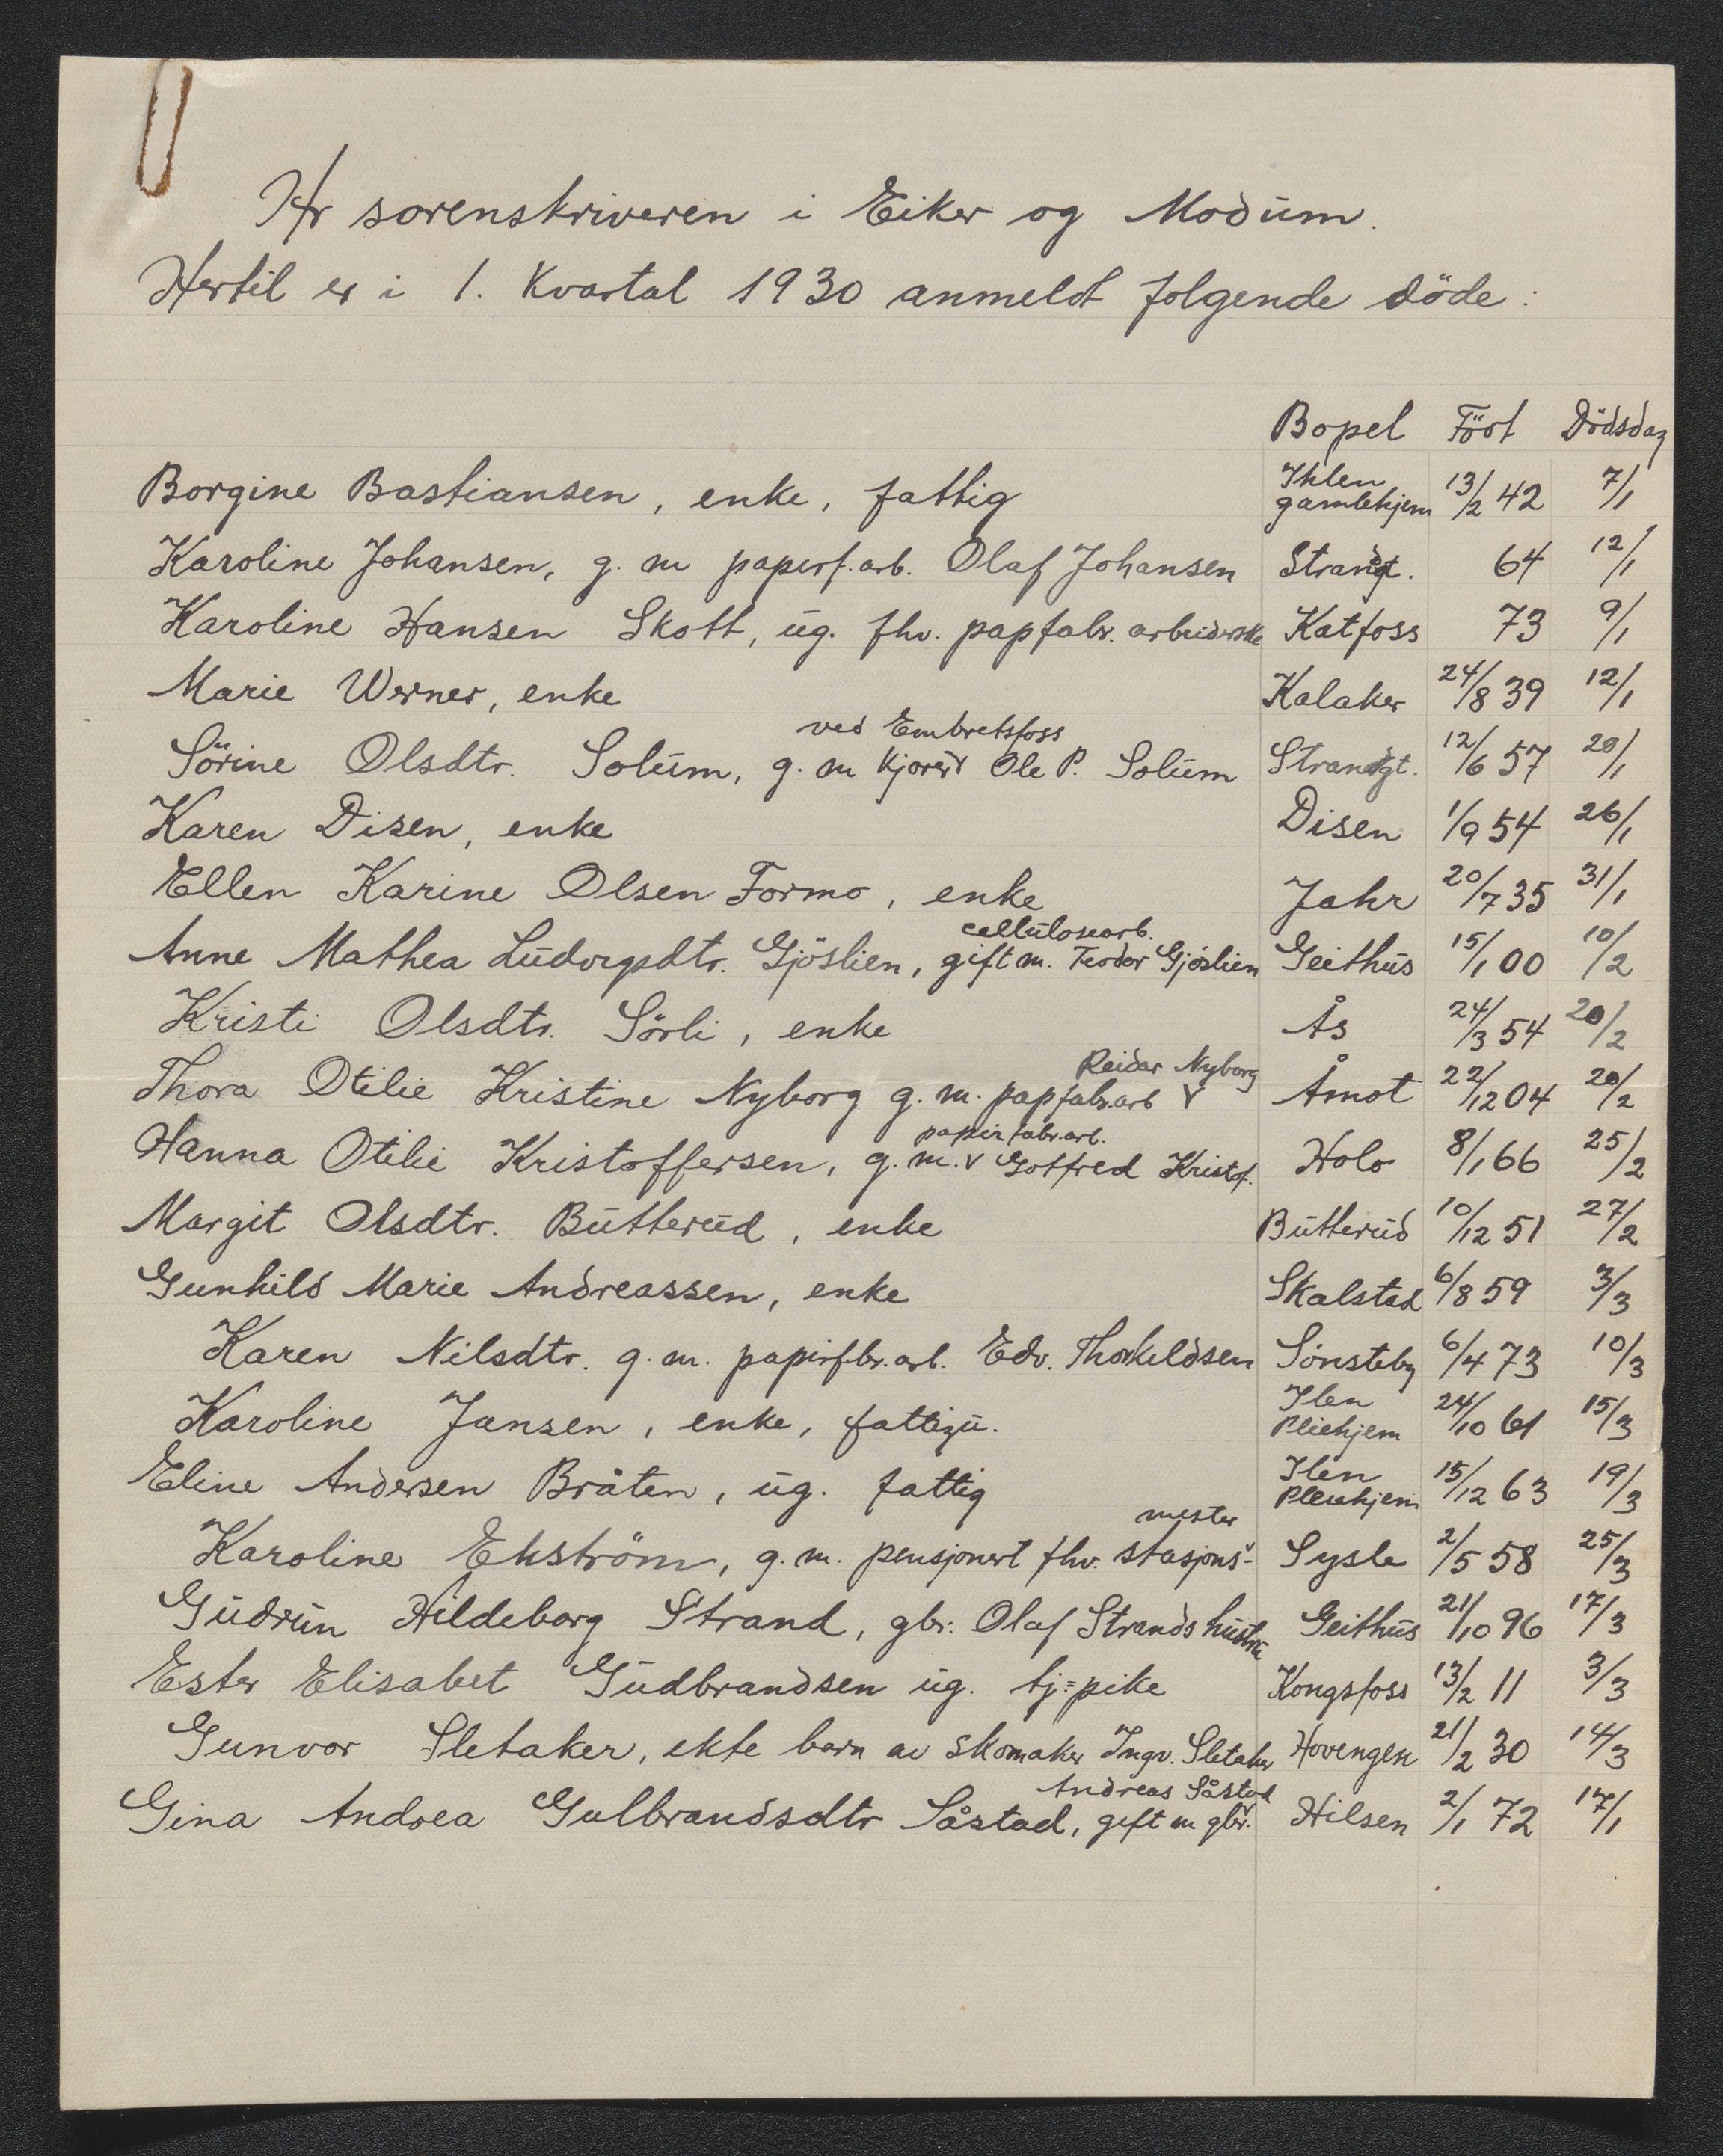 Hr sorenskriveren i Eiker og Modum.
Hertil er i 1. Kvartal 1930 anmeldt følgende döde:
Bopel Född Dödsdag
Borgine Bastiansen, enke, fattig Ihlen gamlehjem 13/2 42 7/1
Karoline Johansen, g. m paperf.arb. Olaf Johansen Strandgt. 64 12/1
Karoline Hansen Skott, ug. fhv. papfabr. arbeiderske Katfoss 73 9/1
Marie Werner, enke Kalaker 24/8 39 12/1
ved Embretsfoss
Sörine Olsdtr. Solum, g. m kjorer v Ole P. Solum Strandgt. 12/6 57 20/1
Karen Disen, enke Disen 1/9 54 26/1
Ellen Karine Olsen Formo, enke Jahr 20/7 35 31/1
cellulosearb.
Anne Mathea Ludvigsdtr. Gjöslien, gift m. Teodor Gjöslien Geithus 15/1 00 10/2
Kristi Olsdtr. Sörli, enke Ås 24/3 54 20/2
Reidar Nyborg
Thora Otilie Kristine Nyborg g. m. papfabr.arb v Åmot 22/12 04 20/2
papirfabr.arb.
Hanna Otilie Kristoffersen, g. m. v Gotfred Kristof. Holo 8/1 66 25/2
Margit Olsdtr. Butterud, enke Butterud 10/12 51 27/2
Gunhild Marie Andreassen, enke Skalstad 6/8 59 3/3
Karen Nilsdtr. g. m. papirfbr.arb. Edv. Thorkeldsen Sönsteby 6/4 73 10/3
Karoline Jansen, enke, fattigu. Ilen Pleiehjem 24/10 61 15/3
Eline Andersen Bråten, ug. fattig Ilen Pleiehjem 15/12 63 19/3
mester
Karoline Ekström, g. m. pensjonert fhv. stasjons- v Sysle 2/5 58 25/3
Gudrun Hildeborg Strand, gbr. Olaf Strands hustru Geithus 21/10 96 17/3
Ester Elisabet Gudbrandsen ug. tj=pike Kongsfoss 13/2 11 3/3
Gunvor Sletaker, ekte barn av skomaker Ingv. Sletaker Hovengen 21/2 30 14/3
Andreas Såstad
Gina Andrea Gulbrandsdtr Såstad, gift m gbr. v Hilsen 2/1 72 17/1